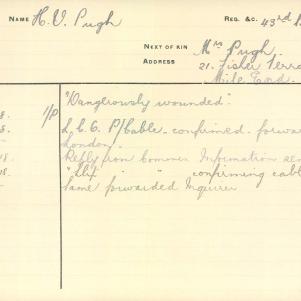 NAME H. V. Pugh REG. &C. 43rd B
NEXT OF KIN Mrs Pugh.
ADDRESS 21. Fisher Terra
Mile End.
"Dangerously wounded."
8. 1/P L.C.C. P/Cable - confirmed - forwar
8. London"
18. Reply from Commee Information sen
18. " " confirming cabl
same forwarded Inquirer